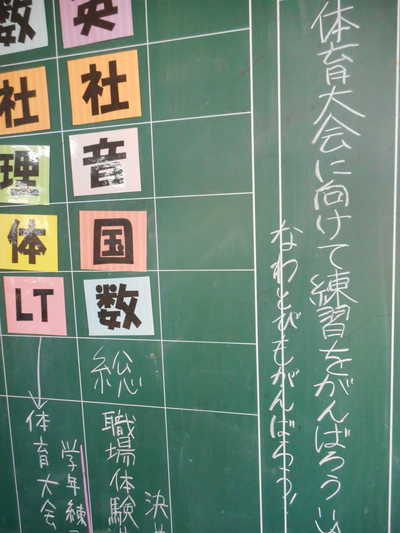 体育大会に向けて練習をがんばろう
なわとびもがんばろう!
英
社
音
国
数
総
職場体験
決
数
社
理
体
LT
体育大会
学年練